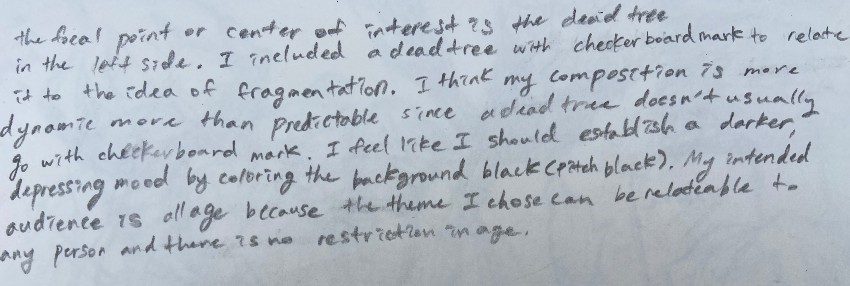 the focal point or center of interest is the dead tree
in the left side. I included a dead tree with checkerboard mark to relate
it to the idea of fragmentation. I think my composition is more
dynamic more than predictable since a dead tree doesn't usually
go with checkerboard mark. I feel like I should establish a darker,
depressing mood by coloring the background black (pitch black). My intended
audience is all age because the theme I chose can be relateable to
any person and there is no restriction in age.